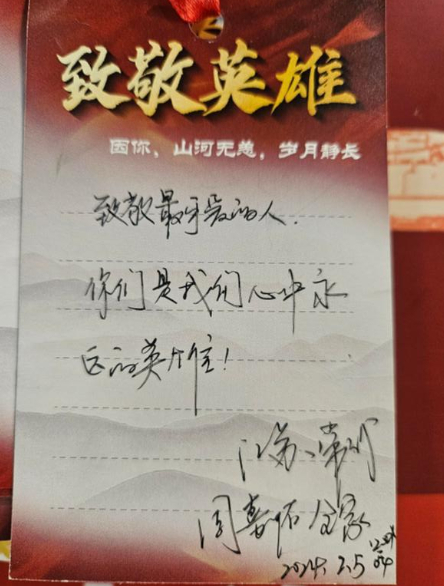 致敬英雄
因你,山河无恙,岁月静长
致敬最可爱的人.
你们是我们心中永
远的英雄!
江苏、常州
周 全家
2024.2.5